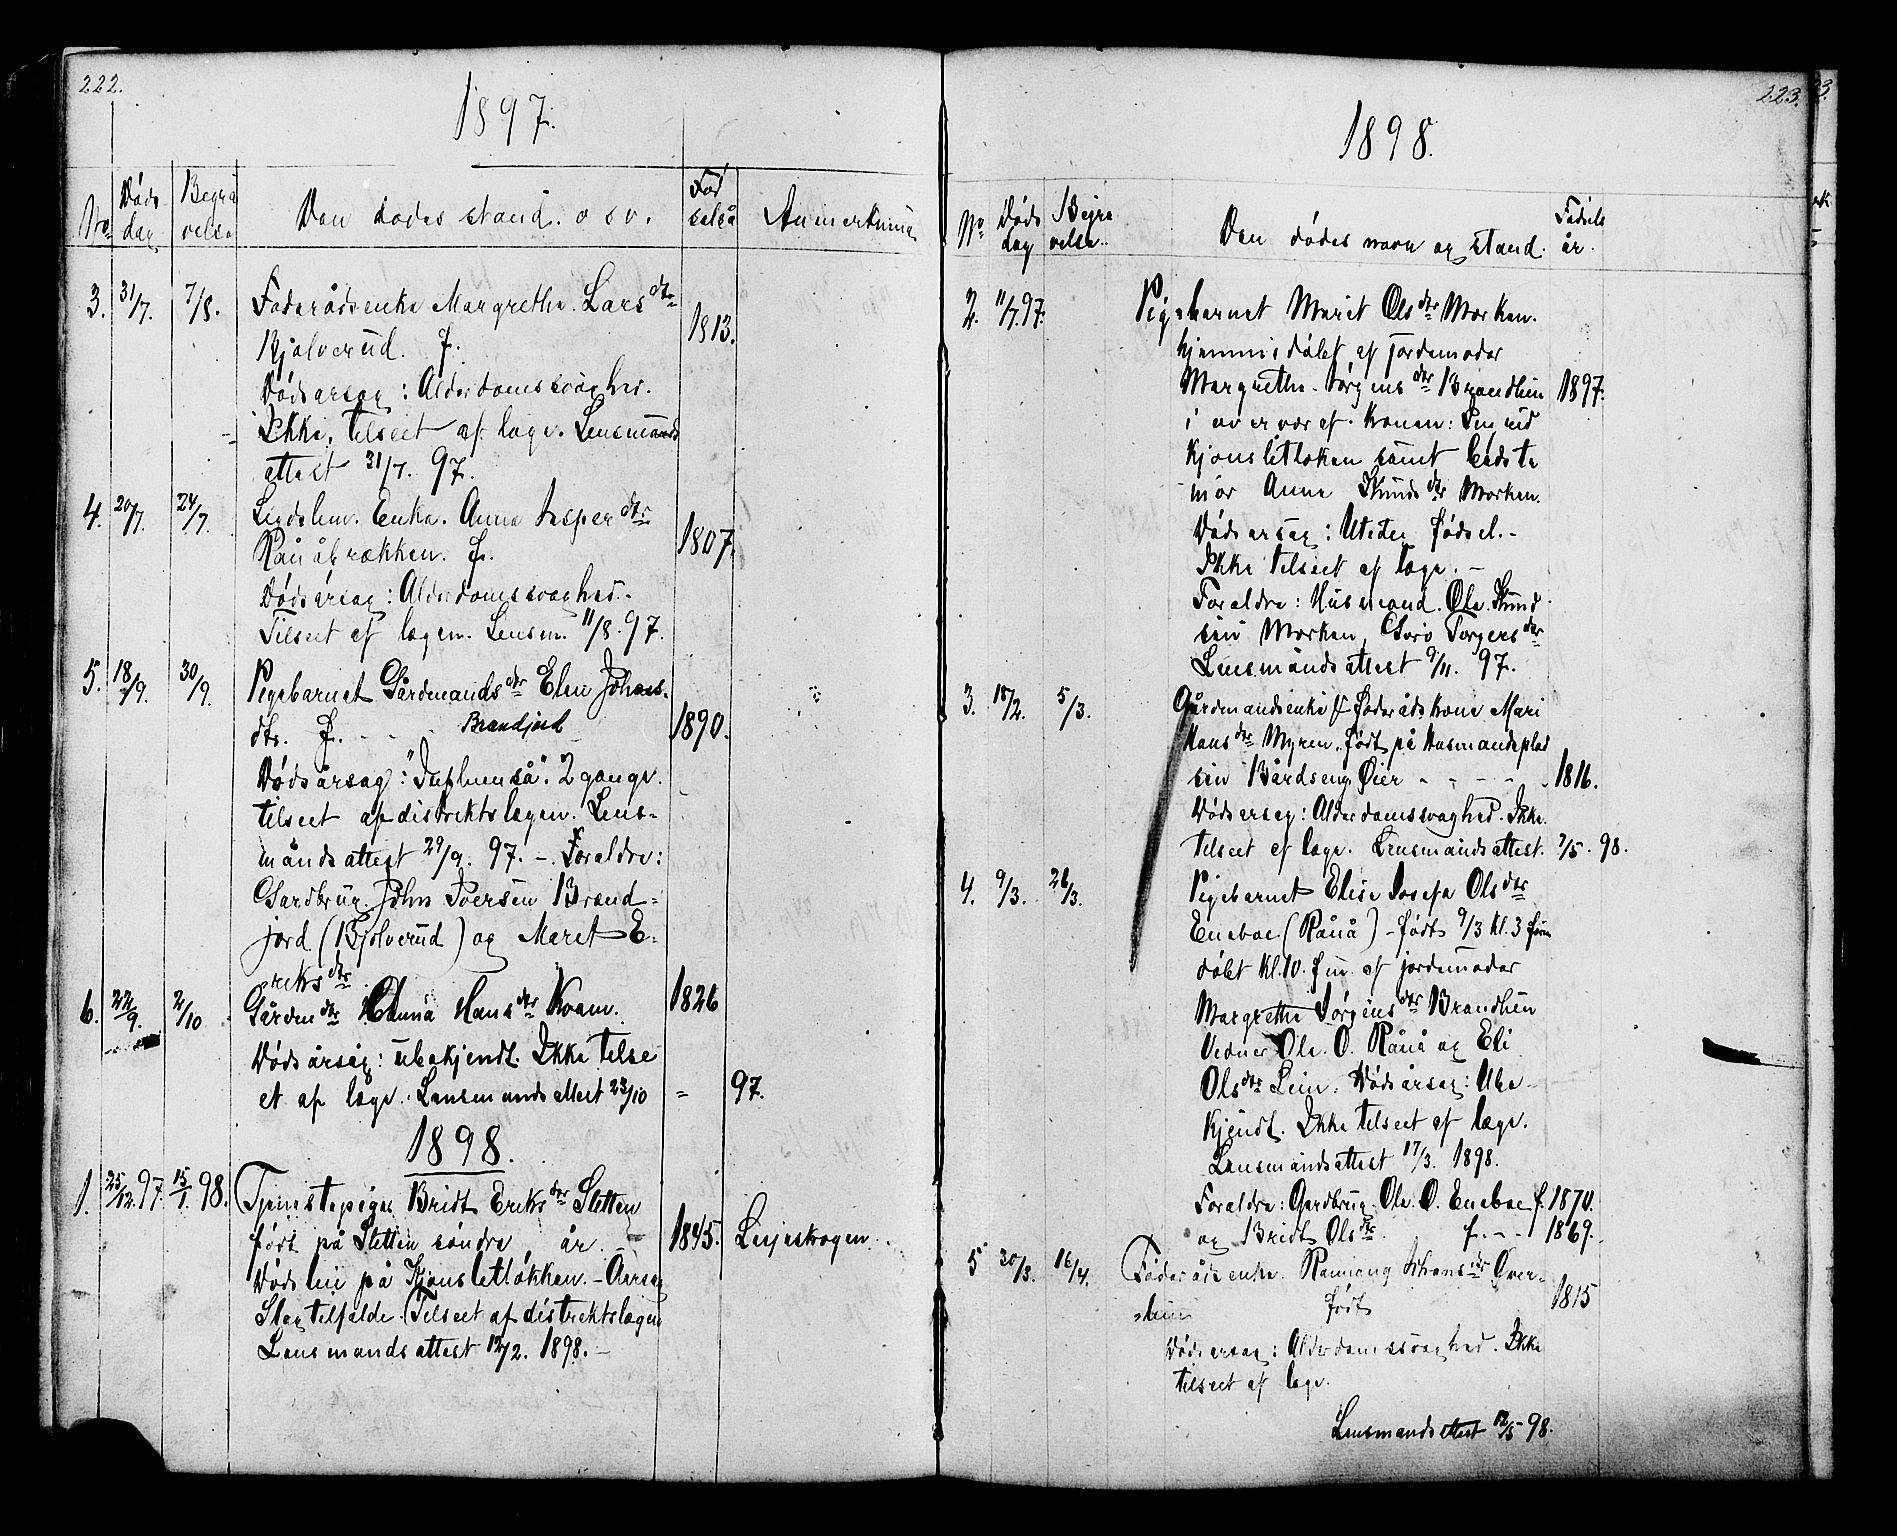 222.
1897.
No. Døds dag Begra velse Den dødes stand. o s v. Fød selså Anmerkning
3. 31/7. 7/8. Føderådsenke Margrethe. Lars dtr
Kjolverud. f. 1813.
Dødsårsag: Alderdomssvaghed.
Ikke, tilseet af læge. Lensmands
attest 31/7. 97.
4. 20/7. 24/7. Enke. Anna Jesper dtr
Rauåbrækken. f. 1807.
Dødsårsag: Alderdomssvaghed.-
Tilseet af lægen. Lensm. 11/8. 97.
5. 18/9. 30/9. Pigebarnet Gårdmands dtr Elen Johans-
dtr. f. - - Brandjord 1890.
Dødsårsag: "Influensa". 2 gange.
tilseet af distriktslægen. Lens-
mandsattest 29/9. 97. -. Foraldre:
Gardbrug. John Iversen Brand-
jord (Bjolverud) og Maret E-
reks dtr
6. 22/9. 2/10 Gårdm dtr Anna Hans dtr Kvam. 1826
Dødsårsag: ubekjendt. Ikke tilse
et af læge. Lensmandsattest 23/10 = 97.
1898.
1. 25/12.97. 15/1. 98. Tjenestepige Bridt Eriks dtr Sletten
født på Sletten søndre år. - 1845. Lesjeskogen.
Døds lei på Kjønsletløkken. - Aarsag
Slagtilfælde. Tilseet af distriktslægen
Lensmandsattest 12/2. 1898. -
223.
1898.
No. Døds dag Begra velse. Den dødes navn og stand. Fødsels år.
2. 11/7.97. Pigebarnet Marit Ols dtr Morken.
hjemmedøbt af jordemoder
Margrethe. Jørgens dtr Brandlien 1897.
i overvær af Konen: Ingrid
Kjønsletløken samt bedste
mor Anne Knuds dtr Morken.
Dødsårsag: Utidig fødsel. -
Ikke tilseet af læge. -
Foraldre: Husmand. Ole. Knud
sen Morken, Goro Torgers dtr
Lensmandsattest 9/11. 97.
3. 18/2. 5/3. Gårdmandsenke & føderådskone Mari
Hans dtr Myren. født på Husmandsplad
sen Bårdseng Øier - - - - 1816.
Dødsårsag: Alderdomssvaghed. Ikke.
tilseet af læge. Lensmandsattest. 7/5. 98.
4. 9/3. 26/3. Pigebarnet Elise Josefa Ols dtr
Eneboe (Råuå) - født 9/3 kl. 3 fm
døbt kl. 10. fm. af jordemoder
Margrethe Jørgens dtr Brandlien
Vidner Ole. O. Råuå og Eli
Ols dtr Lien. Dødsårsag: Ube
kjendt. Ikke tilseet af læge.
Lensmandsattest 17/3. 1898.
Foraldre: Gardbrug. Ole. O. Eneboe f. 1870.
og Bridt Ols dtr f. - - 1869.
5 30/3. 16/4. Føderådsenke. Rannoug Johans dtr Over-
lien født 1815
Dødsårsag: Alderdomssvaghed. Ikke
tilseet af læge.
Lensmandsattest 12/5 - 98.